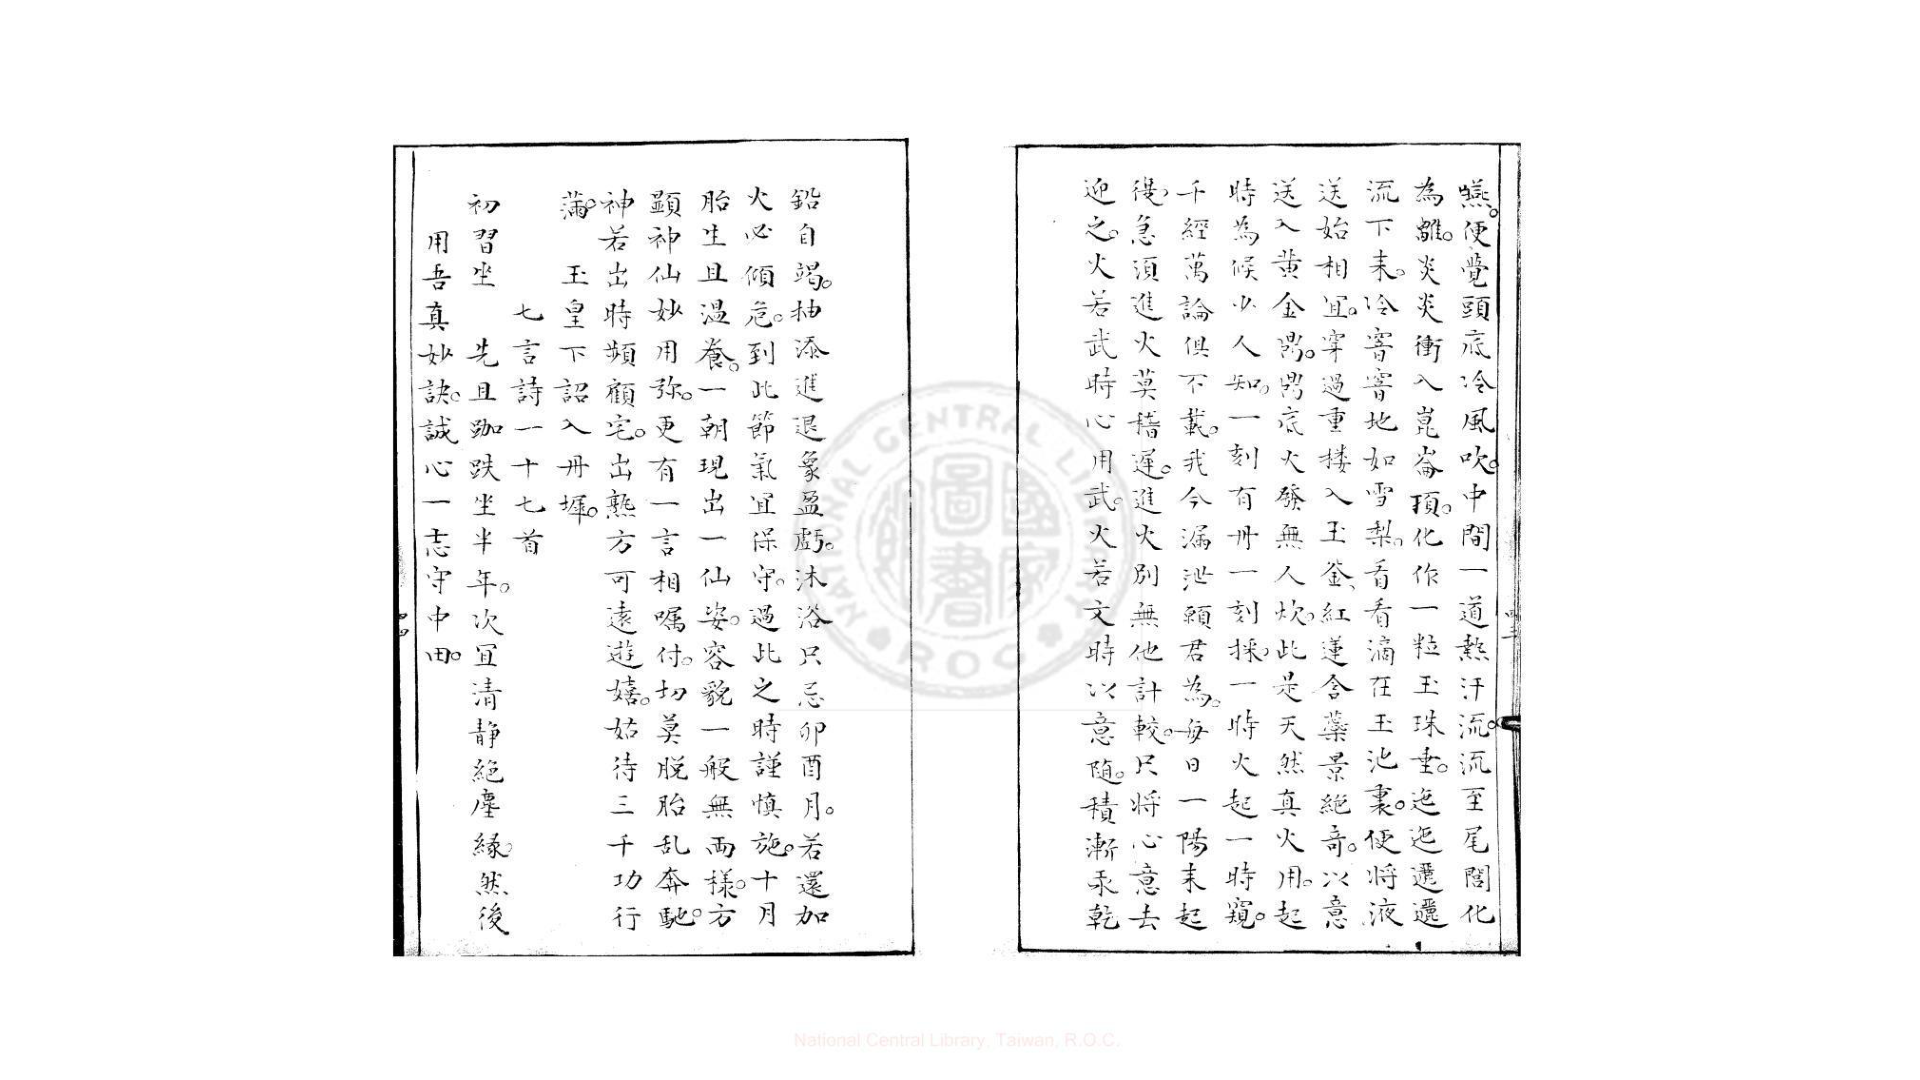 蟻。便覺頭底冷風吹。中間一道熱汗流。流至尾閭化
為離。炎炎衝入崑崙頂。化作一粒玉珠垂。迤迤邐邐
流下来。冷窨窨地如雪梨。看看滴在玉池裏。便將液
送始相宜。穿過重楼入玉釜、紅蓮含蘂景絶竒。以意
送入黄金鼎。鼎底火發無人炊。此是天然真火用。起
時為候少人知。一刻有丹一刻採。一時火起一時窺。
千經萬論俱不載。我今漏泄頼君為。每日一陽来起
後。急須進火莫稽遲。進火別無他計較。只將心意去
迎之。火若武時心用武。火若文時以意随。積漸汞乾
鉛自竭。抽添進退象盈虧。沐浴只忌卯酉月。若還加
火必傾危。到此節氣宜保守。過此之時謹慎施。十月
胎生且温養。一朝現出一仙姿。容貌一般無兩樣。方
顕神仙妙用弥。更有一言相嘱付。切莫脱胎乱奔馳。
神若出時頻顧宅。出熟方可遠遊嬉。姑待三千功行
滿。玉皇下詔入丹墀。
七言詩一十七首
初習坐 先且跏趺坐半年。次宜清静絶塵緣。然後
用吾真妙訣。誠心一志守中田。
National Central Library, Taiwan, R.O.C.
NATIONAL CENTRAL LIBRARY
ROC
國家圖書館